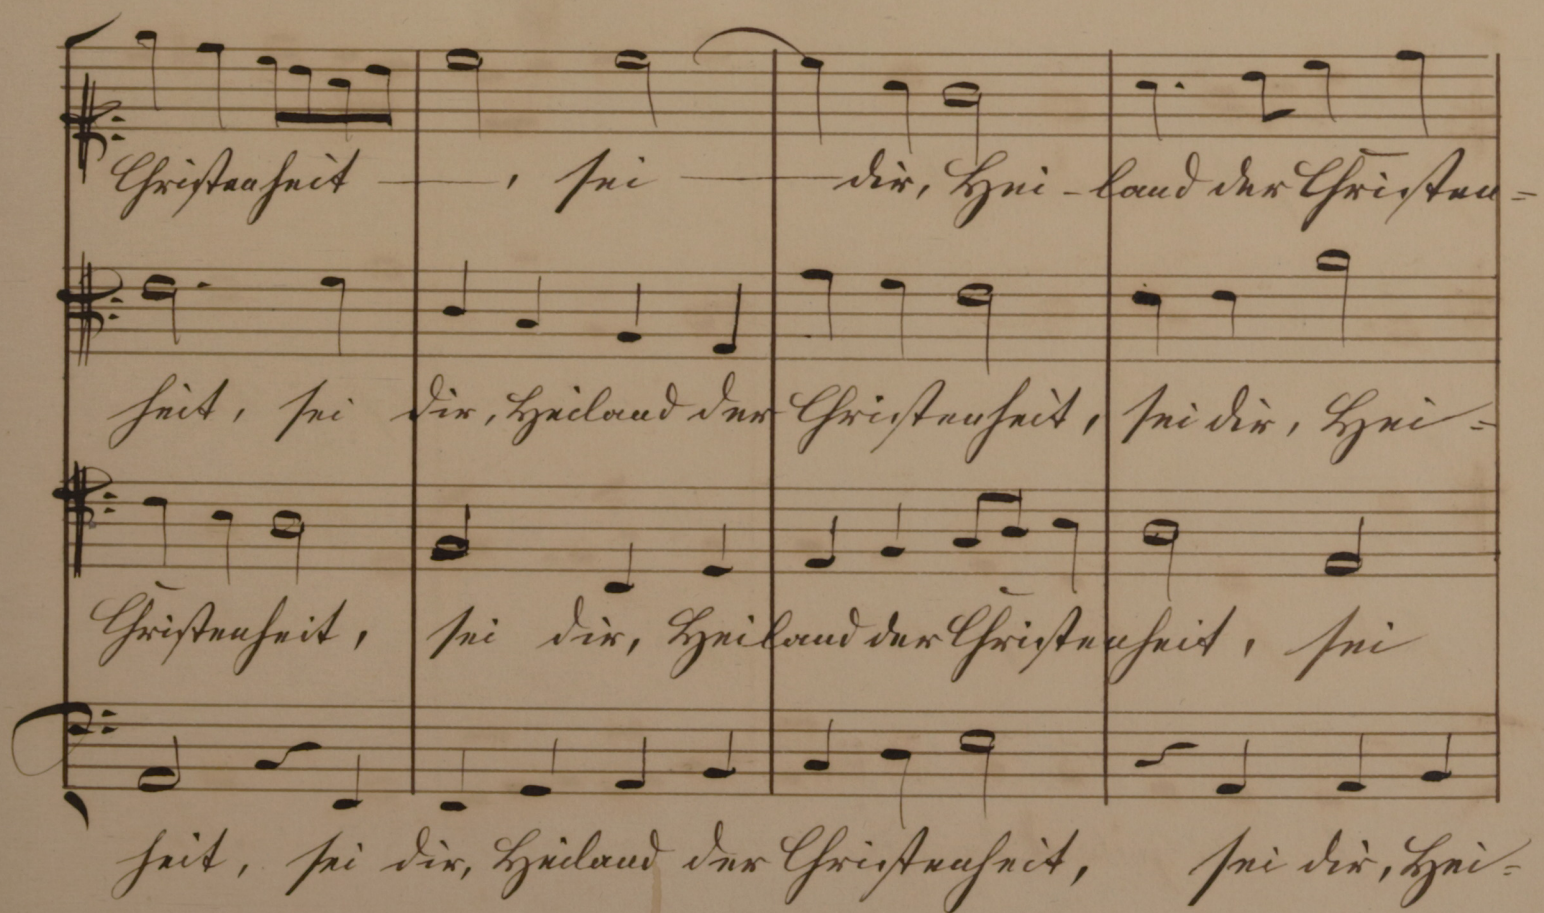 Christenheit ——, sei —— dir, Hei-land der Christen=
heit, sei dir, Heiland der Christenheit, sei dir, Hei=
Christenheit, sei dir, Heiland der Christenheit, sei
heit, sei dir, Heiland der Christenheit, sei dir, Hei=